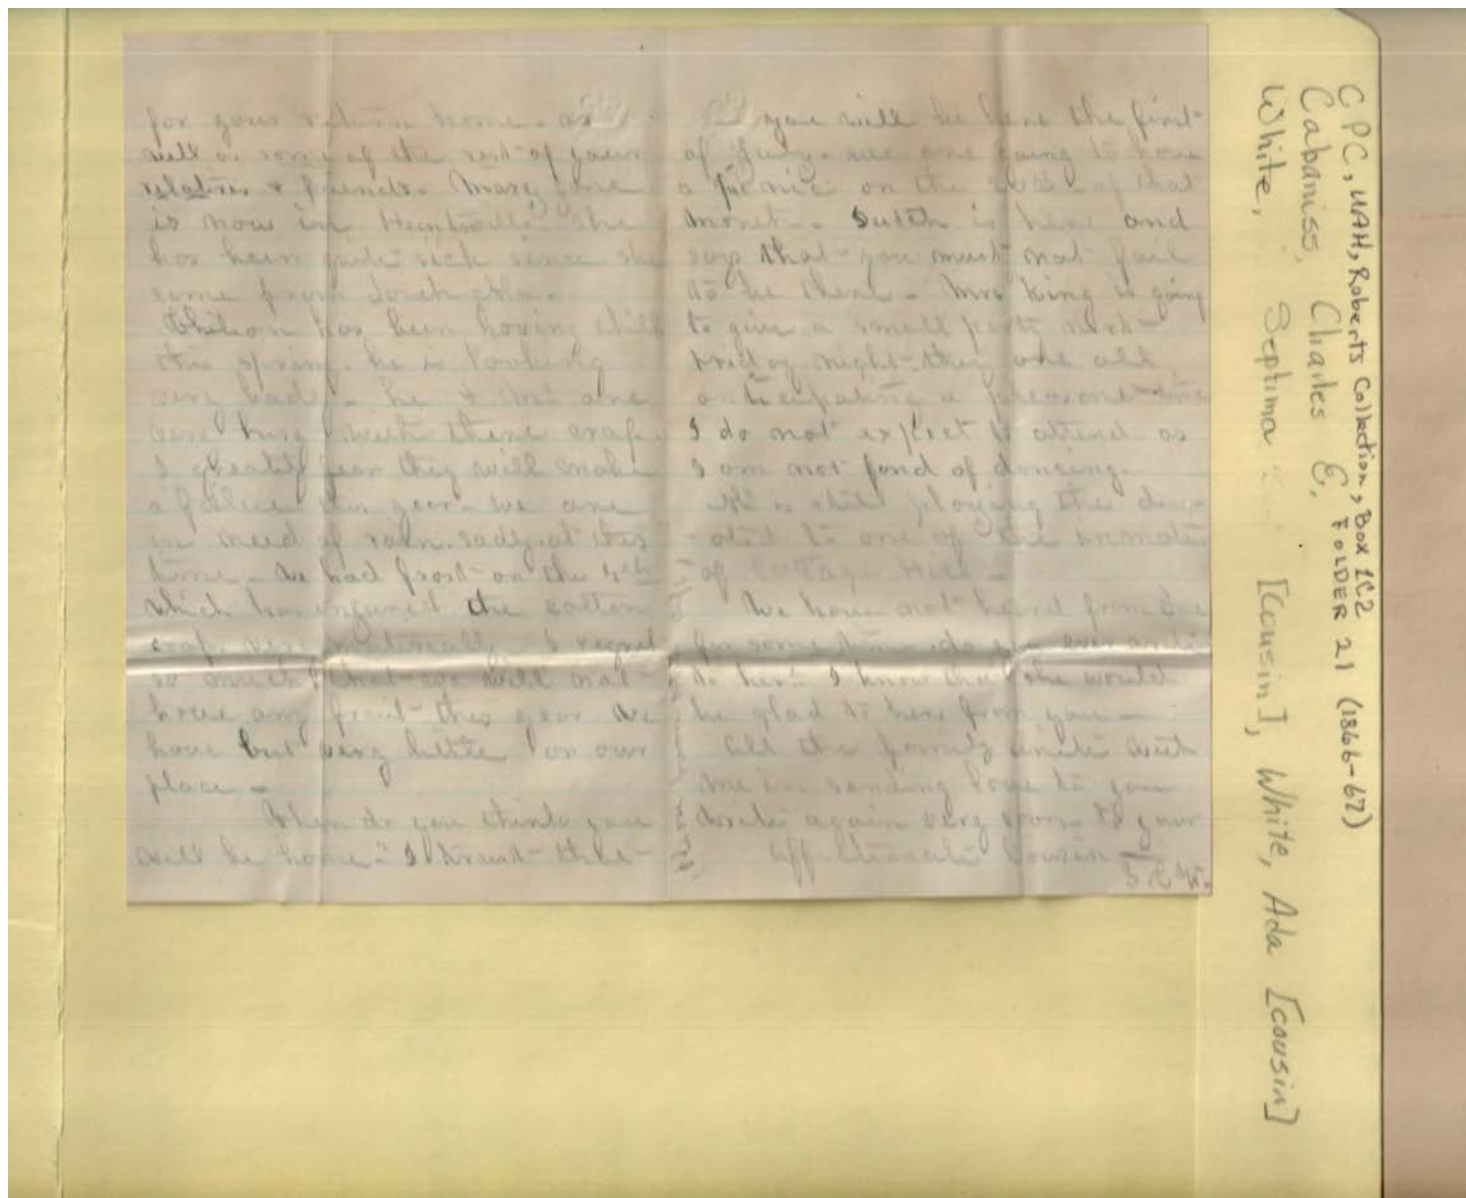 for your return home - as
well as some of the rest of your
relatives & friends - Mary Jane
is now in Huntsville she
has been quite sick since she
come from South Ala -
has been having chills
this spring - he is looking
very badly - he & are
very busy with there crop -
I greatly fear they will make
a failure this year - we are
in need of rain sadly at this
time - We had frost on the
which has injured the cotton
crop very materially I regret
so much that we will not
have any fruit this year we
have but very little on our
place -
When do you think you
will be home - I trust that
you will be here the first
of we are going to have
a picnic on the of that
month - is here and
says that you must not fail
to be there - Mrs King is going
to give a small party next
Friday night - they are all
anticipating a pleasant time
I do not expect to attend as
I am not fond of dancing -
is still playing the dev-
-oted to one of the inmates
of Cottage Hill -
We have not heard from
for some time do you ever write
to her - I know that she would
be glad to hear from you -
All the family unite with
me in sending love to you
Write again very soon - to your
affectionate Cousin
CPC, UAH, Roberts Collection, Box 1C2
FOLDER 21 (1866-67)
Cabaniss, Charles E.
White, Septima [Cousin], White, Ada [cousin]